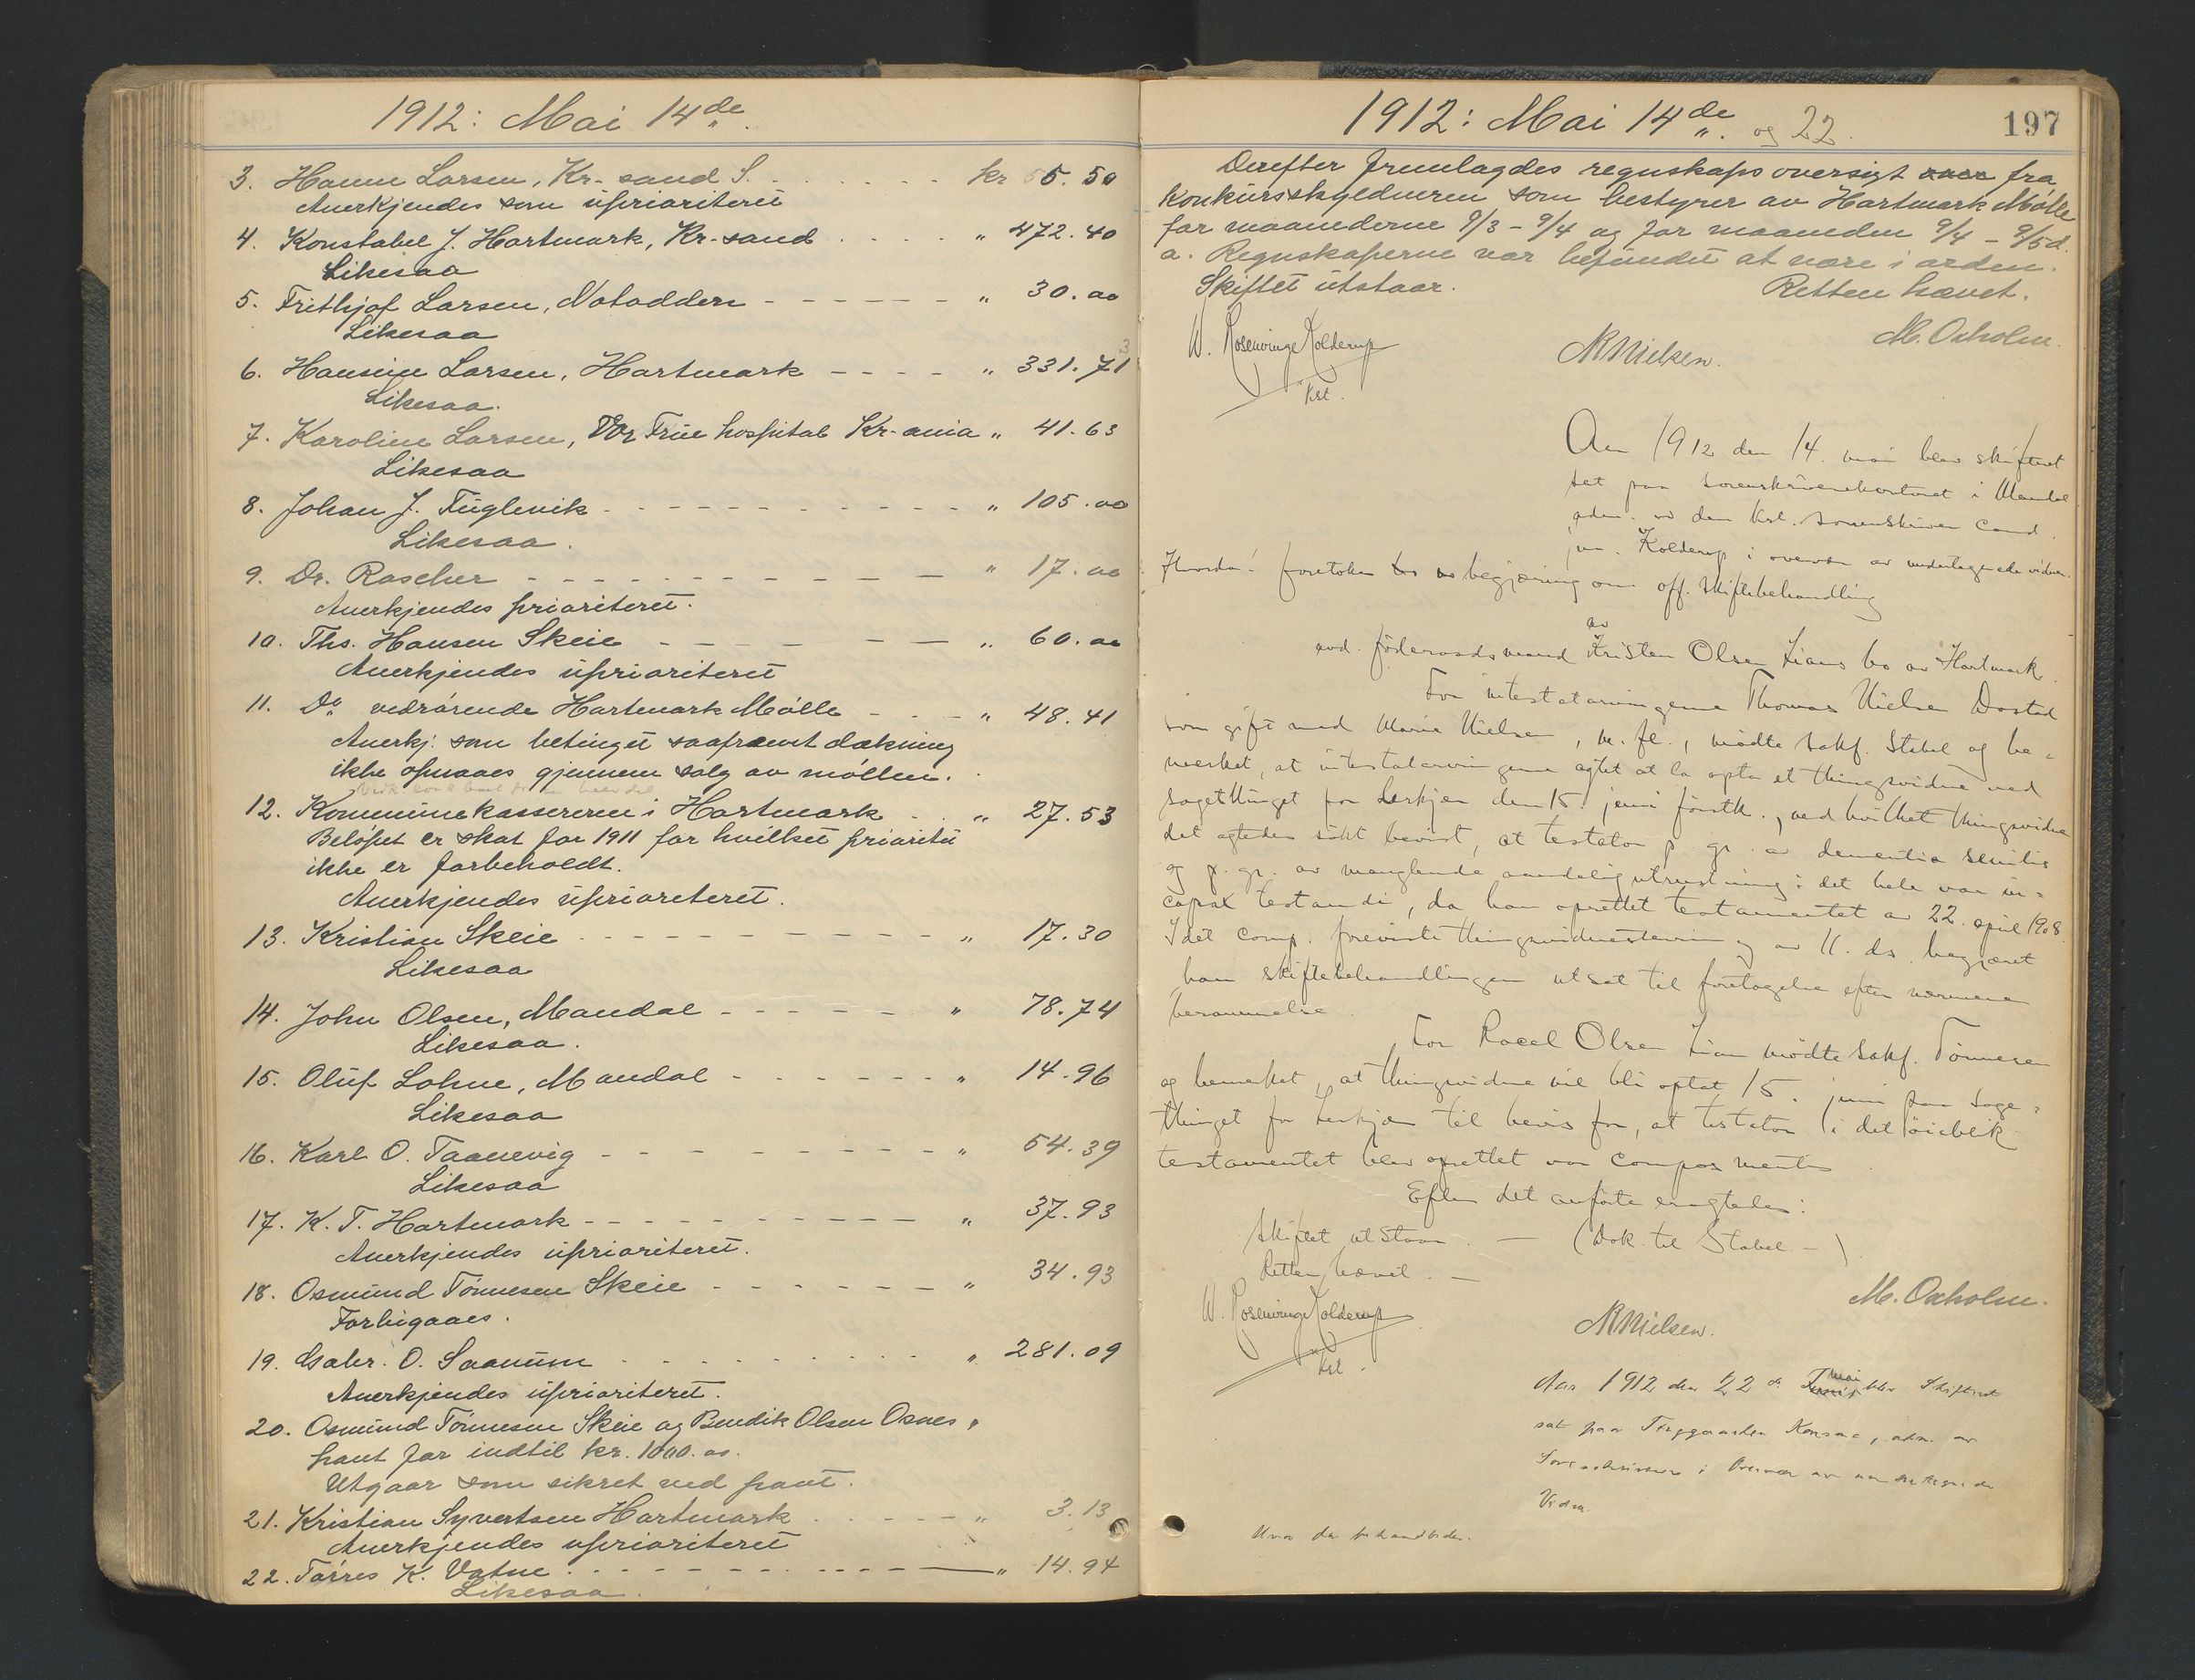 1912: Mai 14de.
3. Hanne Larsen, Kr-sand S. - - - - - - kr 55.50
Anerkjendes som uprioriteret
4. Konstabel J. Hartmark, Kr-sand . . . . . " 472.40
Likesaa
5. Frithjof Larsen, Notodden - - - - - - " 30.00
Likesaa
6. Hansine Larsen, Hartmark - - - - " 331.71
Likesaa.
7. Karoline Larsen, Vor Frue hospital Kr-ania " 41.63
Likesaa
8. Johan J. Fuglevik - - - - - - - - - - - " 105.00
Likesaa.
9. Dr. Roscher - - - - - - - - - - - - " 17.00
Anerkjendes prioriteret.
10. Ths. Hansen Skeie - - - - - - " 60.00
Anerkjendes uprioriteret
11. Do vedrørende Hartmark Mølle - - - " 48.41
Anerkj. som betinget saafremt dækning
ikke opnaaes gjennem salg av møllen.
12. Kommunekassereren i Hartmark . . " 27.53
Beløpet er skat for 1911 for hvilket prioritet
ikke er forbeholdt.
Anerkjendes uprioriteret.
13. Kristian Skeie - - - - - - - - - - " 17.30
Likesaa
14. John Olsen, Mandal - - - - - - " 78.74
Likesaa.
15. Oluf Lohne, Mandal - - - - - - " 14.96
Likesaa
16. Karl O. Taanevig - - - - - - - - - " 54.39
Likesaa
17. K. T. Hartmark - - - - - - - - - - " 37.93
Anerkjendes uprioriteret.
18. Osmund Tønnesen Skeie - - - - - - - " 34.93
Forbigaaes.
19. Gabr. O. Saanum . . . . . . . . . . " 281.09
Anerkjendes uprioriteret.
20. Osmund Tønnesen Skeie og Bendik Olsen Osnes "
pant for indtil kr. 1000.00.
Utgaar som sikret ved pant.
21. Kristian Syvertsen Hartmark . . . - - - " 3.13
Anerkjendes uprioriteret
22. Tørres K. Vatne . - - - - - - - - " 14.94
Likesaa.
1912: Mai 14de. og 22.
197
Derefter fremlagdes regnskapsoversigt fra
konkursskyldneren som bestyrer av Hartmark Mølle
for maanederne 9/3 - 9/4 og for maaneden 9/4 - 9/5 d.
a. Regnskaperne var befundet at være i orden.
Skiftet utstaar. Retten hævet.
M. Oxholm.
W. Rosenvinge Kolderup
kst.
NNielsen.
Aar 1912 den 14. mai blev skifteret
sat paa sorenskriverkontoret i Mandal
adm. av den kst. sorenskriver cand.
jur. Kolderup i overvær av undertegnede vidner.
Hvorda: foretokes begjæring om off. skiftebehandling
av
avd. føderaadsmand Kristen Olsen Lians bo av Hartmark.
For intestatarvingerne Thomas Nielsen
som gift med Marie Nielsen, m. fl., mødte sakf. Stabel og be-
merket, at intestatarvingerne agtet at la opta et thingsvidne ved
sagethinget for Lerkjær den 15. juni førstk., ved hvilket thingsvidne
det agtedes søkt bevist, at testator p. gr. av dementia senilis
og p. gr. av manglende aandelig utrustning i det hele var in-
capax testandi, da han oprettet testamentet av 22. april 1908.
Idet comp. foreviste thingsvidnestevning av 11. ds. begjæret
han skiftebehandlingen utsat til foretagelse efter nærmere
berammelse.
For Racel Olsen Lian mødte sakf. Tønnesen
og bemerket, at thingsvidne vil bli optat 15. juni paa sage-
thinget for Lerkjær til bevis for, at testator i det øieblik
testamentet blev oprettet var compos mentis.
Efter det anførte eragtedes:
Skiftet utstaar. — (Dok. til Stabel. —)
Retten hævet. —
M. Oxholm.
W. Rosenvinge Kolderup
kst.
NNielsen.
Aar 1912 den 22 d. mai blev Skifteret
sat paa Tinggaarden Konsmo, adm. av
Sorenskriveren i Overvær av undertegnede
Vidner.
Hvor da behandledes.